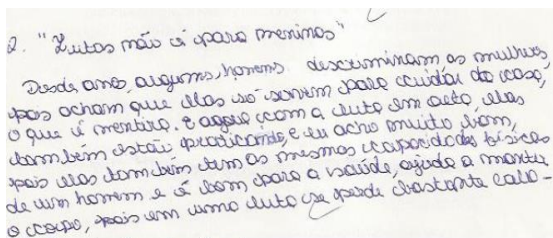 2. "Lutas não é para meninas"
Desde anos, alguns, homens descriminam as mulheres,
pois acham que elas só servem para cuidar da casa,
o que é mentira. E agora com a luta em auta, elas
também estão praticando, e eu acho muito bom,
pois elas também tem as mesmas capacidades físicas
de um homem e é bom para a saúde, ajuda a manter
o corpo, pois em uma luta se perde bastante calo-